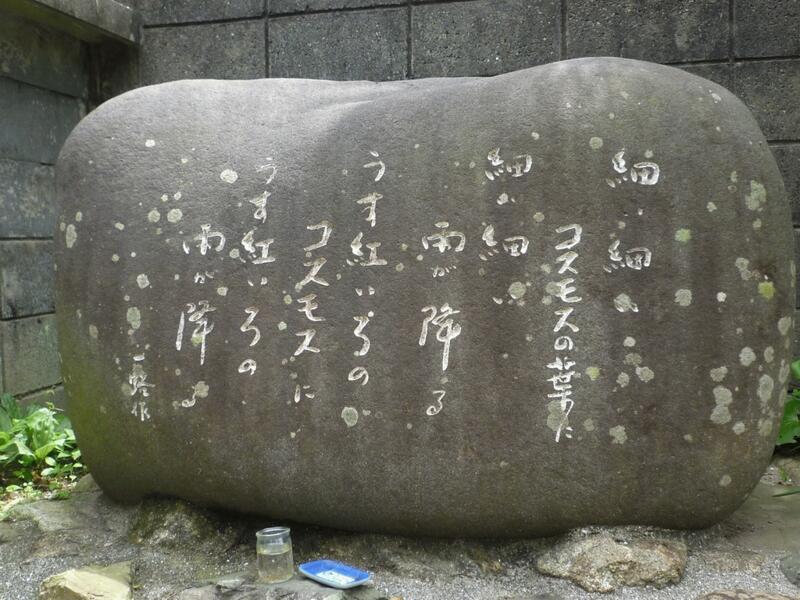 細い細い
コスモスの葉に
細い細い
雨が降る
うす紅いろの
コスモスに
うす紅いろの
雨が降る